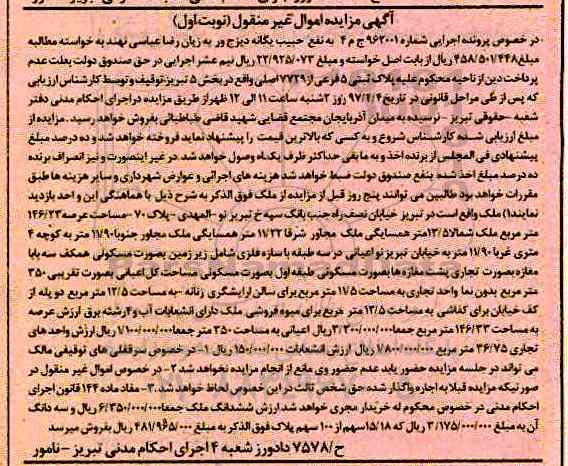 آگهی مزایده اموال غیر منقول (نوبت اول)
در خصوص پرونده اجرایی شماره ۹۶۲۰۰۱ ج م ۴ به نفع حبیب یگانه دیزج ور به زیان رضا عباسی نهند به خواسته مطالبه
مبلغ ۴۵۸/۵۰۱/۴۴۸ ریال از بابت اصل خواسته و مبلغ ۲۲/۹۲۵/۰۷۳ ریال نیم عشر اجرایی در حق صندوق دولت بعلت عدم
پرداخت دین از ناحیه محکوم علیه پلاک ثبتی ۵ فرعی از ۷۷۲۹ اصلی واقع در بخش ۵ تبریز توقیف و توسط کارشناس ارزیابی
که پس از طی مراحل قانونی در تاریخ ۹۷/۴/۴ روز ۲شنبه ساعت ۱۱ الی ۱۲ ظهر از طریق مزایده در اجرای احکام مدنی دفتر
شعبه - حقوقی تبریز - نرسیده به میدان آذربایجان مجتمع قضایی شهید قاضی طباطبائی بفروش خواهد رسید. مزایده از
مبلغ ارزیابی شده کارشناس شروع و به کسی که بالاترین قیمت را پیشنهاد نماید فروخته خواهد شد و ده درصد مبلغ
پیشنهادی فی المجلس از برنده اخذ و به مابقی حداکثر ظرف یکماه وصول خواهد شد. در غیر اینصورت و نیز انصراف برنده
ده درصد مبلغ اخذ شده بنفع صندوق دولت ضبط خواهد شد هزینه های اجرائی و عوارض شهرداری و سایر هزینه ها طبق
مقررات خواهد بود طالبین می توانند پنج روز قبل از مزایده از ملک فوق الذکر به شرح ذیل با هماهنگی این واحد بازدید
نمایند ۱) ملک واقع است در تبریز خیابان نصف راه جنب بانک سپه خ تبریز نو - المهدی - پلاک ۷۰ - مساحت عرصه ۱۴۶/۲۳
متر مربع ملک شمالا ۱۳/۵ متر همسایگی ملک مجاور شرقا ۱۱/۲۲ متر همسایگی ملک مجاور جنوبا ۱۱/۹۰ متر به کوچه ۴
متری غربا ۱۱/۹۰ متر به خیابان تبریز نو اعیانی در سه طبقه با سازه فلزی شامل زیرزمین بصورت مسکونی همکف سه بابا
مغازه بصورت تجاری پشت مغازه ها بصورت مسکونی طبقه اول بصورت مسکونی مساحت کل اعیانی بصورت تقریبی ۳۵۰
متر مربع بدون نما واحد تجاری به مساحت ۱۱/۵ متر مربع برای سالن آرایشگری زنانه - به مساحت ۱۲/۵ متر مربع دو پله از
کف خیابان برای کفاشی به مساحت ۱۳/۵ متر مربع برای میوه فروشی ملک دارای انشعابات آب و ۴ رشته برق ارزش عرصه
به مساحت ۱۴۶/۲۳ متر مربع جمعا ۳/۳۰۰/۰۰۰/۰۰۰ ریال اعیانی به مساحت ۳۵۰ متر جمعا ۱/۱۰۰/۰۰۰/۰۰۰ ریال ارزش واحد های
تجاری ۳۶/۷۵ متر مربع ۱/۸۰۰/۰۰۰/۰۰۰ ریال ارزش انشعابات ۱۵۰/۰۰۰/۰۰۰ ریال ۱- در خصوص سرقفلی های توقیفی مالک
می تواند در جلسه مزایده حضور یابد عدم حضور وی مانع از انجام مزایده نخواهد شد ۲- در خصوص اموال غیر منقول در
صورتیکه مزایده قبلا به اجاره واگذار شده حق شخص ثالث در این خصوص لحاظ خواهد شد. ۳- مفاد ماده ۱۴۴ قانون اجرای
احکام مدنی در خصوص محکوم له خریدار مجری خواهد شد ارزش ششدانگ ملک جمعا ۶/۳۵۰/۰۰۰/۰۰۰ ریال و سه دانگ
آن به مبلغ ۳/۱۷۵/۰۰۰/۰۰۰ ریال که ۱۵/۱۸ سهم از ۱۰۰ سهم پلاک فوق الذکر به مبلغ ۴۸۱/۹۶۵/۰۰۰ ریال بفروش میرسد
ح/۷۵۷۸ دادورز شعبه ۴ اجرای احکام مدنی تبریز - نامور